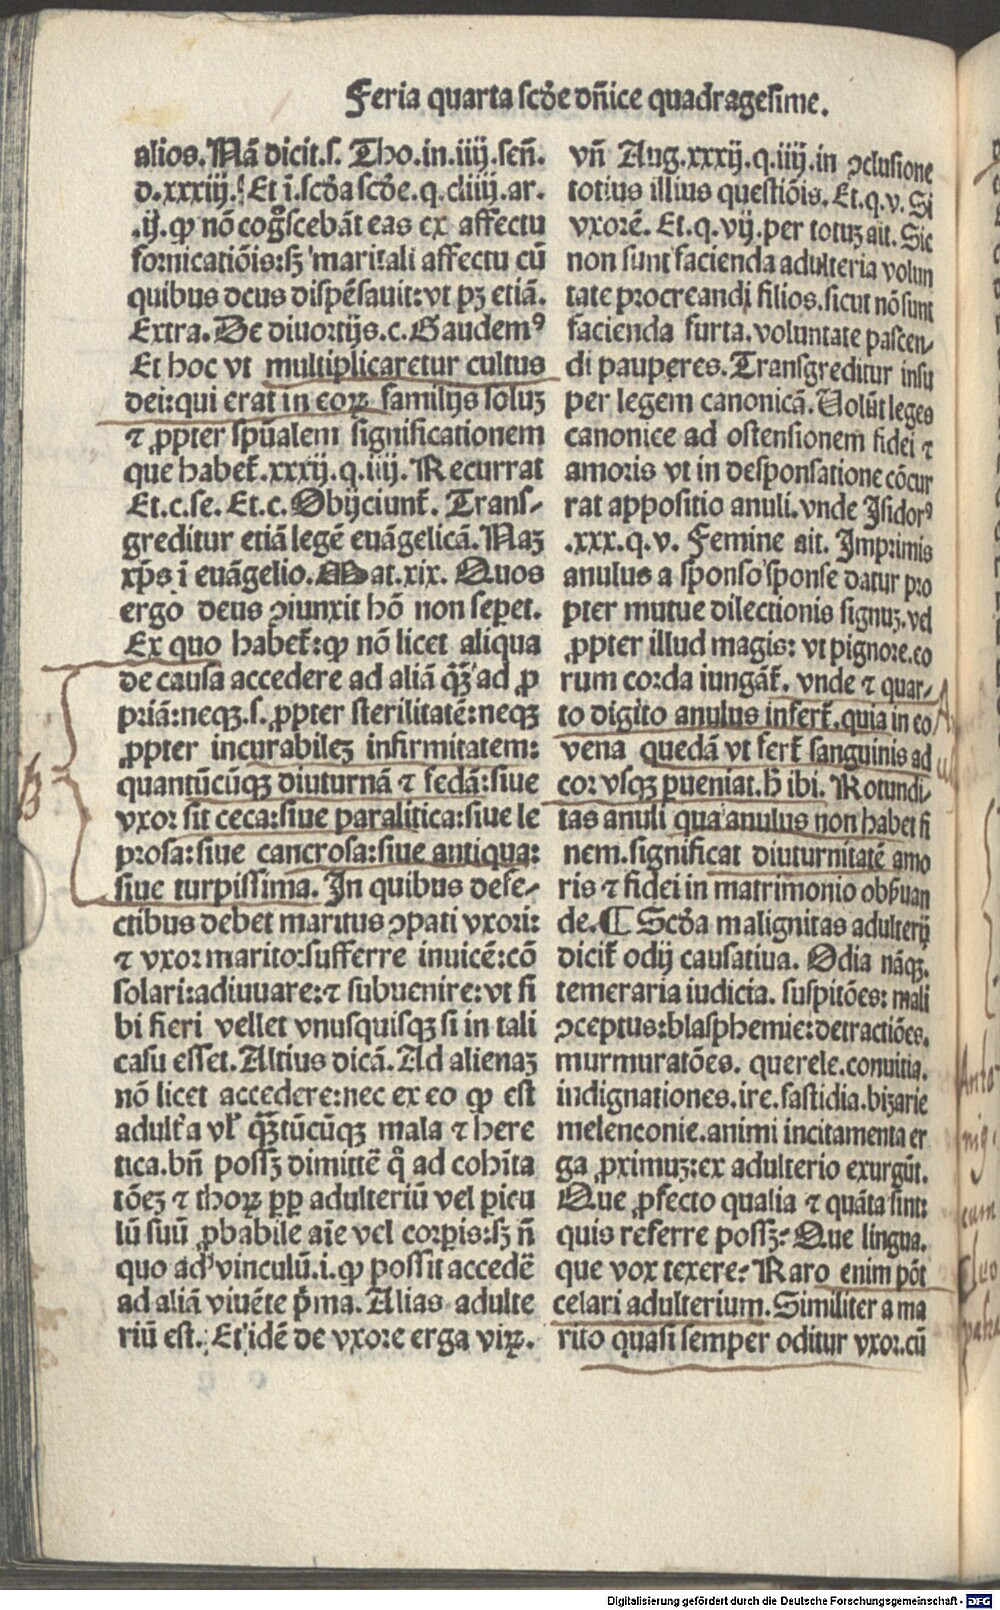 Feria quarta scðe dñice quadragesime.
alios. Nã dicit. s. Tho. in. iiij. señ.
d. xxxiij. Et ĩ. scða scðe. q. cliiij. ar.
.ij. ꝙ nõ cog̃scebãt eas ex affectu
fornicatiõis: sꝫ maritali affectu cũ
quibus deus dispẽsauit: vt pꝫ etiã.
Extra. De diuortijs. c. Gaudemꝰ
Et hoc vt multiplicaretur cultus
dei: qui erat in eoꝝ familijs soluꝫ
⁊ ꝓpter spũalem significationem
que habet̃. xxxij. q. iiij. Recurrat
Et. c. se. Et. c. Obijciunt̃. Trans⸗
greditur etiã legẽ euãgelicã. Naꝫ
xp̃s ĩ euãgelio. Mat. xix. Quos
ergo deus ꝯiunxit hõ non seꝑet.
Ex quo habet̃: ꝙ nõ licet aliqua
de causa accedere ad aliã q̃ꝫ ad ꝓ
priã: neqꝫ. s. ꝓpter sterilitatẽ: neqꝫ
ꝓpter incurabileꝫ infirmitatem:
quantũcũqꝫ diuturnã ⁊ fedã: siue
vxor sit ceca: siue paralitica: siue le
prosa: siue cancrosa: siue antiqua:
siue turpissima. In quibus defe⸗
ctibus debet maritus ꝯpati vxori:
⁊ vxor marito: sufferre inuicẽ: cõ
solari: adiuuare: ⁊ subuenire: vt si
bi fieri vellet vnusquisqꝫ si in tali
casu esset. Altius dicã. Ad alienaꝫ
nõ licet accedere: nec ex eo ꝙ est
adult̃a vł q̃ꝫtũcũqꝫ mala ⁊ here
tica. bñ possꝫ dimittẽ q̊ ad cohĩta
tõeꝫ ⁊ thoꝝ ꝓp adulteriũ vel ꝑicu
lũ suũ ꝓbabile aĩe vel corꝑis: sꝫ ñ
quo ad vinculũ. i. ꝙ possit accedẽ
ad aliã viuẽte p̃ma. Alias adulte
riũ est. Et idẽ de vxore erga viꝝ.
vñ Aug. xxxij. q. iiij. in ꝯclusione
totius illius questiõis. Et. q. v. Si
vxorẽ. Et. q. vij. per totuꝫ ait. Sic
non sunt facienda adulteria volun
tate procreandi filios. sicut nõ sunt
facienda furta. voluntate pascen⸗
di pauperes. Transgreditur insu
per legem canonicã. Uolũt leges
canonice ad ostensionem fidei ⁊
amoris vt in desponsatione cõcur
rat appositio anuli. vnde Isidorꝰ
.xxx. q. v. Femine ait. Imprimis
anulus a sponso sponse datur pro
pter mutue dilectionis signuꝫ. vel
ꝓpter illud magis: vt pignore. eo
rum corda iungãt̃. vnde ⁊ quar⸗
to digito anulus infert̃. quia in eo
vena quedã vt fert̃ sanguinis ad
cor vsqꝫ ꝑueniat. h̃ ibi. Rotundi⸗
tas anuli qua anulus non habet fi
nem. significat diuturnitatẽ amo
ris ⁊ fidei in matrimonio obẜuan
de. ¶ Scða malignitas adulterij
dicit̃ odij causatiua. Odia nãqꝫ.
temeraria iudicia. suspitões: mali
ꝯceptus: blasphemie: detractiões.
murmuratões. querele. conuitia.
indignationes. ire. fastidia. bizarie
melenconie. animi incitamenta er
ga ꝓximuꝫ: ex adulterio exurgũt.
Que ꝓfecto qualia ⁊ quãta sint:
quis referre possꝫ? Que lingua.
que vox texere? Raro enim põt
celari adulterium. Similiter a ma
rito quasi semper oditur vxor. cũ
Digitalisierung gefördert durch die Deutsche Forschungsgemeinschaft - DFG